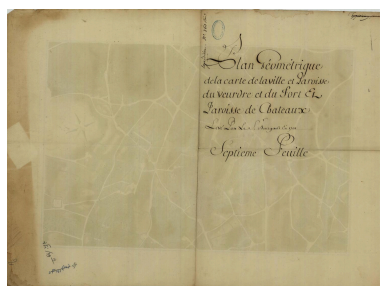 Plan Géométrique
de la carte de la ville et Paroisse
du veurdre et du Port Et
Paroisse de Chateaux
Septieme Feuille